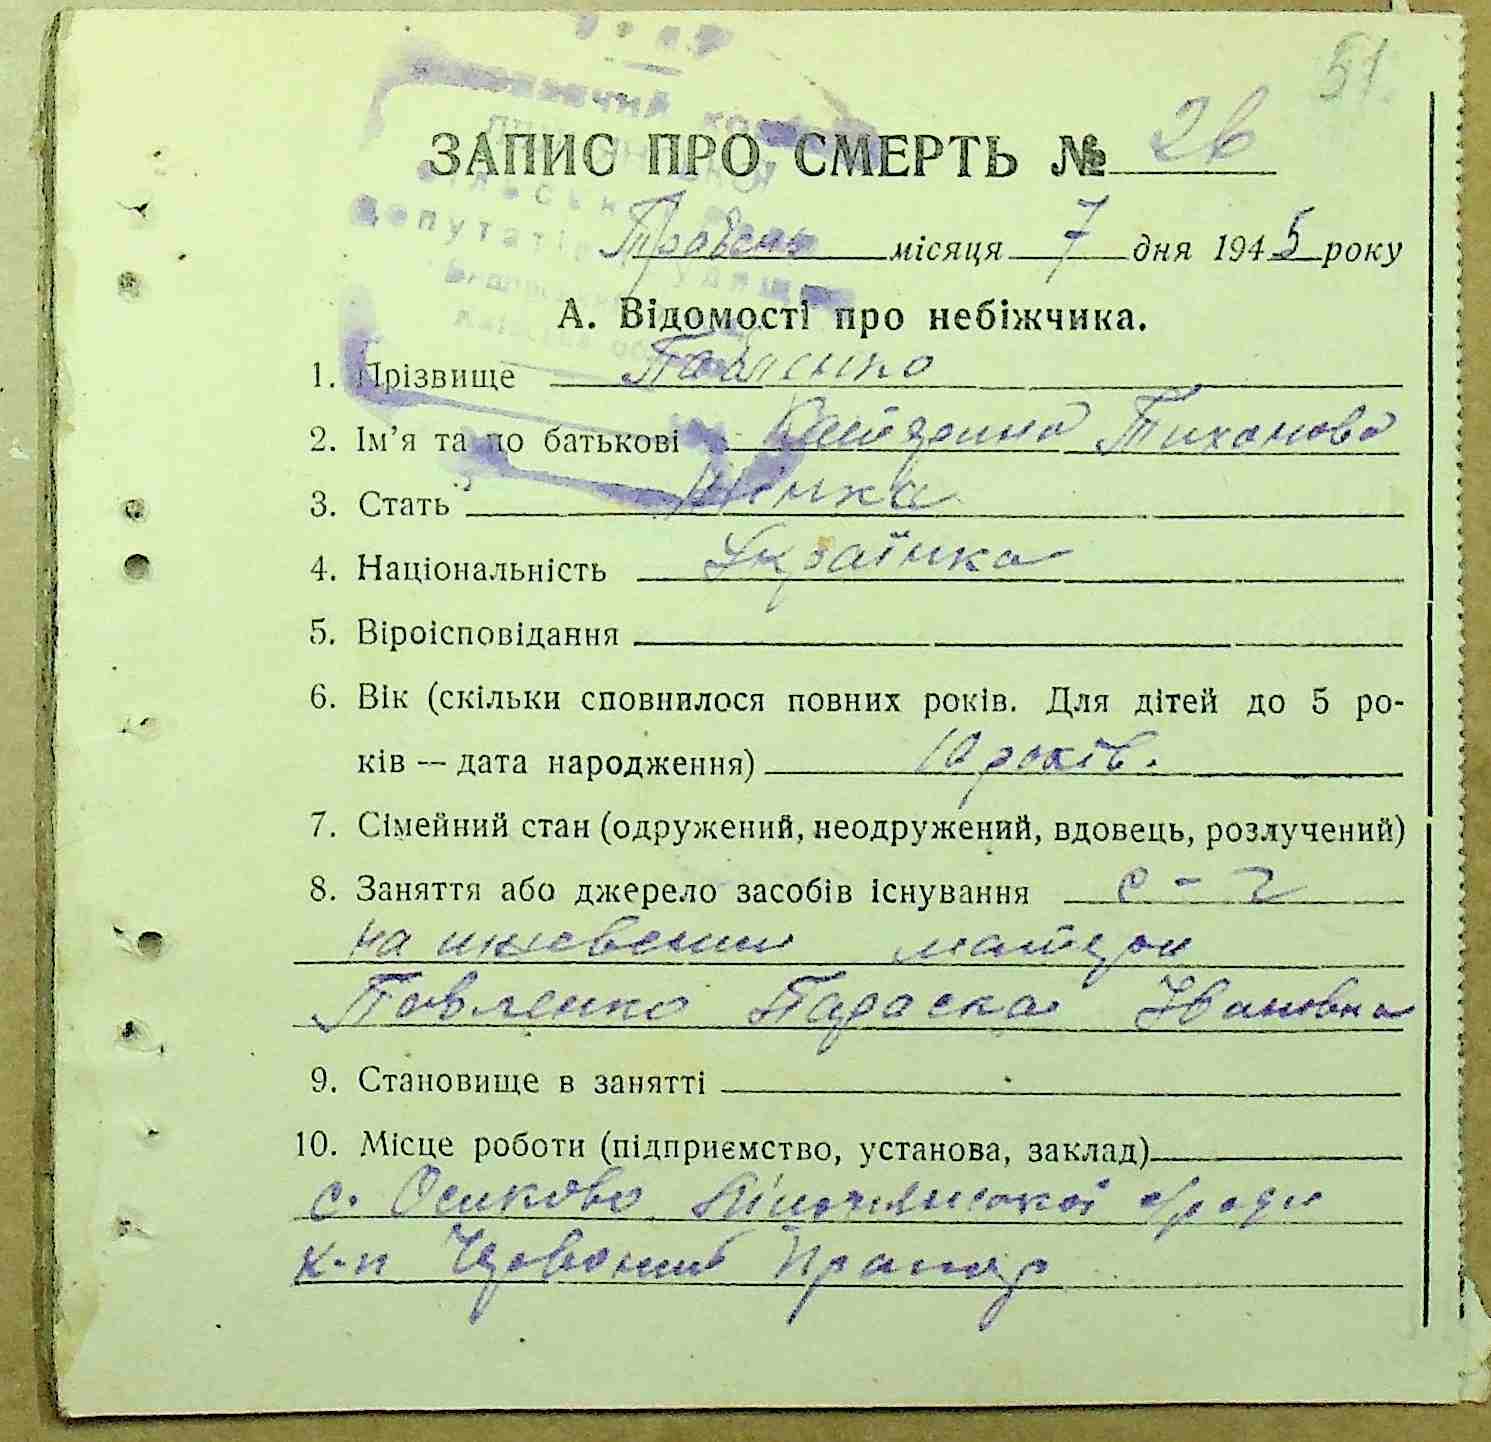 51.
ЗАПИС ПРО СМЕРТЬ № 26
Травень місяця 7 дня 1945 року
А. Відомості про небіжчика.
1. Прізвище Павленко
2. Ім'я та по батькові Катерина Тихонова
3. Стать Жінка
4. Національність Українка
5. Віроісповідання
6. Вік (скільки сповнилося повних років. Для дітей до 5 ро-
ків — дата народження) 10 років.
7. Сімейний стан (одружений, неодружений, вдовець, розлучений)
8. Заняття або джерело засобів існування с - г
на матери
Павленко Параска Ивановна
9. Становище в занятті
10. Місце роботи (підприємство, установа, заклад)
с. Осиково
к-п Червоний Прапор